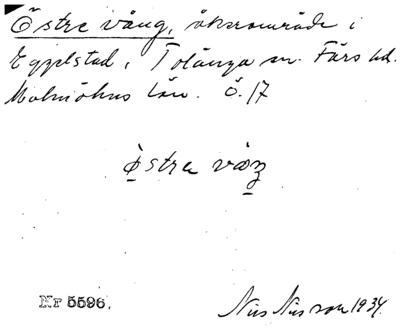 Östre vång, åkerområde i
Eggelstad, Tolånga sn. Färs hd.
Malmöhus län. Ö. 17
østra våŋ
Nr 5596.
Nils Nilsson 1934.